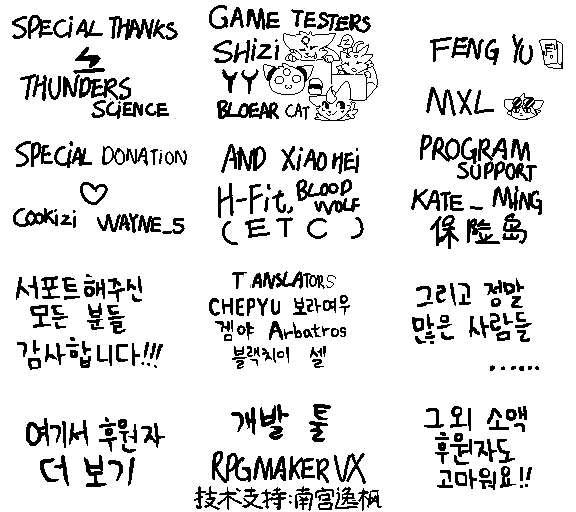 SPECIAL THANKS
THUNDERS
SCIENCE
GAME TESTERS
SHIZI
YY
BLOEAR CAT
FENG YU
MXL
SPECIAL DONATION
COOKIZI WAYNE_5
AND XIAOHEI
H-Fit, BLOOD
WOLF
( E T C )
PROGRAM
SUPPORT
KATE_MING
保险岛
서포트해주신
모든 분들
감사합니다!!!
T ANSLATORS
CHEPYU 보라여우
겜야 Arbatros
블랙치이 셀
그리고 정말
많은 사람들
......
여기서 후원자
더 보기
개발 툴
RPGMAKER VX
技术支持:南宫逸枫
그 외 소액
후원자도
고마워요!!